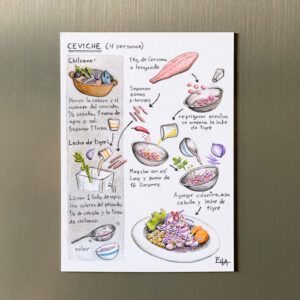 CEVICHE (4 personas)
Chilcano:
Hervir la cabeza y el
esqueleto del pescado,
1/2 cebolla, 1 rama de
apio y sal.
Separar 1 taza.
Leche de tigre:
Licuar 1 tallo de apio,
las sobras del pescado,
1/4 de cebolla y la taza
de chilcano.
colar
1 Kg de Corvina
o lenguado
Separar
zonas
fibrosas
refrigerar mientras
se prepara la leche
de tigre
Mezclar con ají
limo y zumo de
16 limones
Agregar culantro,
cebolla y leche de
tigre